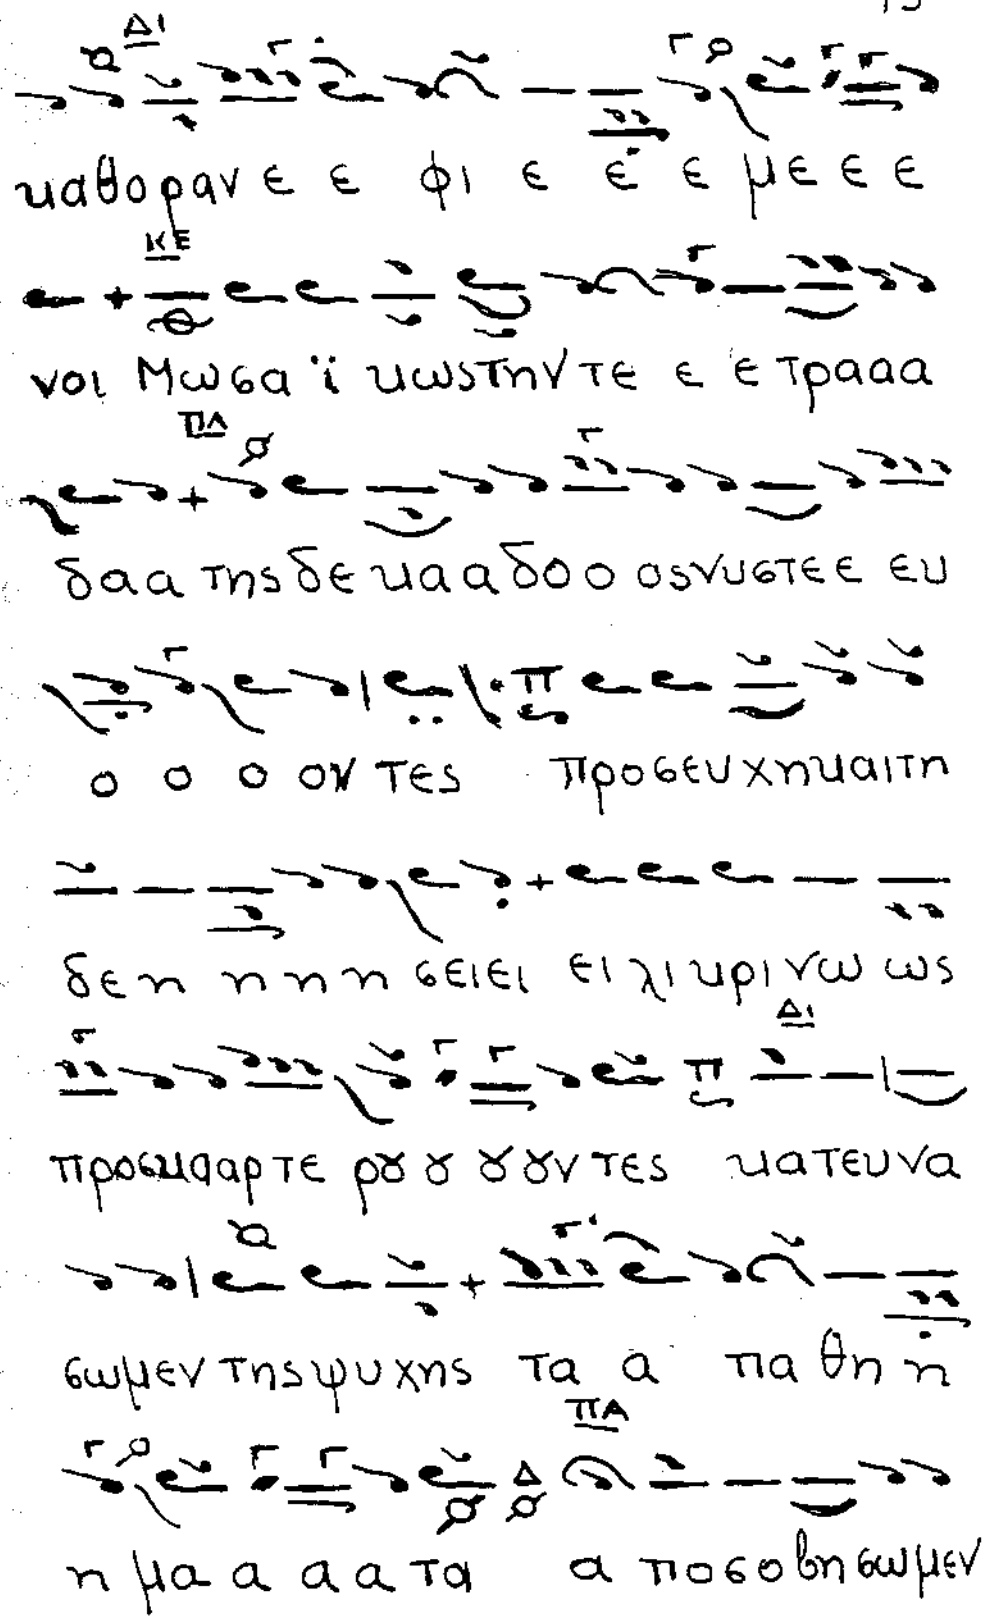 ΔΙ
καθορανε ε φι ε ε ε με ε ε
ΚΕ
νοι Μωσαϊκωςτηντε ε ε τρααα
ΠΑ
δαα τηςδεκααδοο οςνυστεε ευ
ο ο ο οντες προσευχηκαιτη
δεη η η η σειει ειλικρινω ως
ΔΙ
προσκαρτε ρȣ ȣ ȣ ȣντες κατευνα
σωμεντηςψυχης τα α παθη η
ΠΑ
η μα α α α τα αποσοβησωμεν